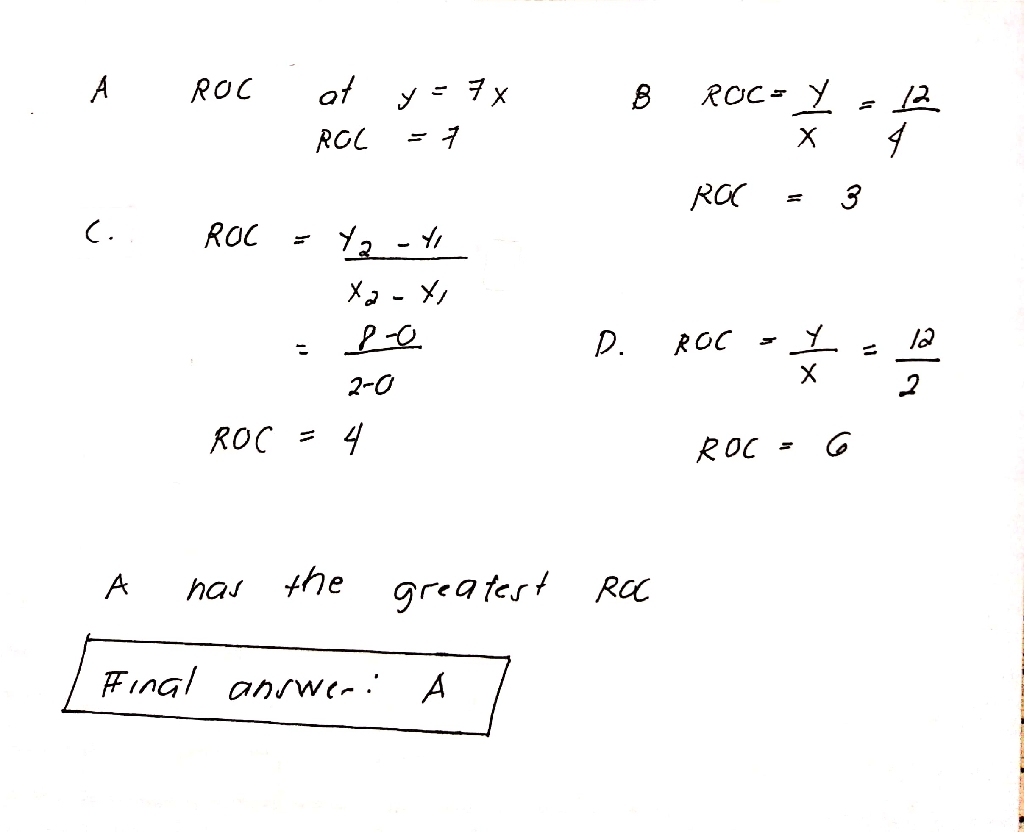 A ROC at y = 7x
ROC = 7
B ROC = Y/X = 12/4
ROC = 3
C. ROC = Y2 - Y1 / X2 - X1
= 8-0 / 2-0
ROC = 4
D. ROC = Y/X = 12/2
ROC = 6
A has the greatest ROC
Final answer: A